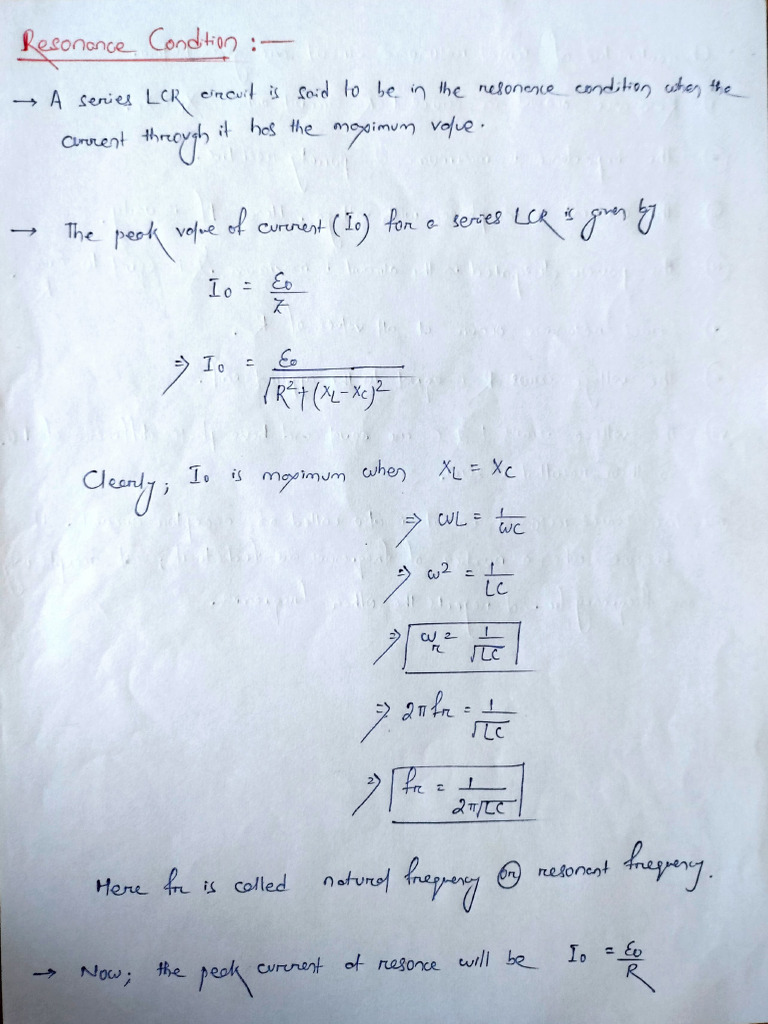 Resonance Condition :—
→ A series LCR circuit is said to be in the resonance condition when the
current through it has the maximum value.
→ The peak value of current (I₀) for a series LCR is given by
I₀ = ε₀/Z
⇒ I₀ = ε₀/√(R² + (X_L - X_C)²)
Clearly; I₀ is maximum when X_L = X_C
⇒ ωL = 1/ωC
⇒ ω² = 1/LC
⇒ ω_r = 1/√LC
⇒ 2πf_r = 1/√LC
⇒ f_r = 1/2π√LC
Here f_r is called natural frequency (or) resonant frequency.
→ Now; the peak current at resonce will be I₀ = ε₀/R